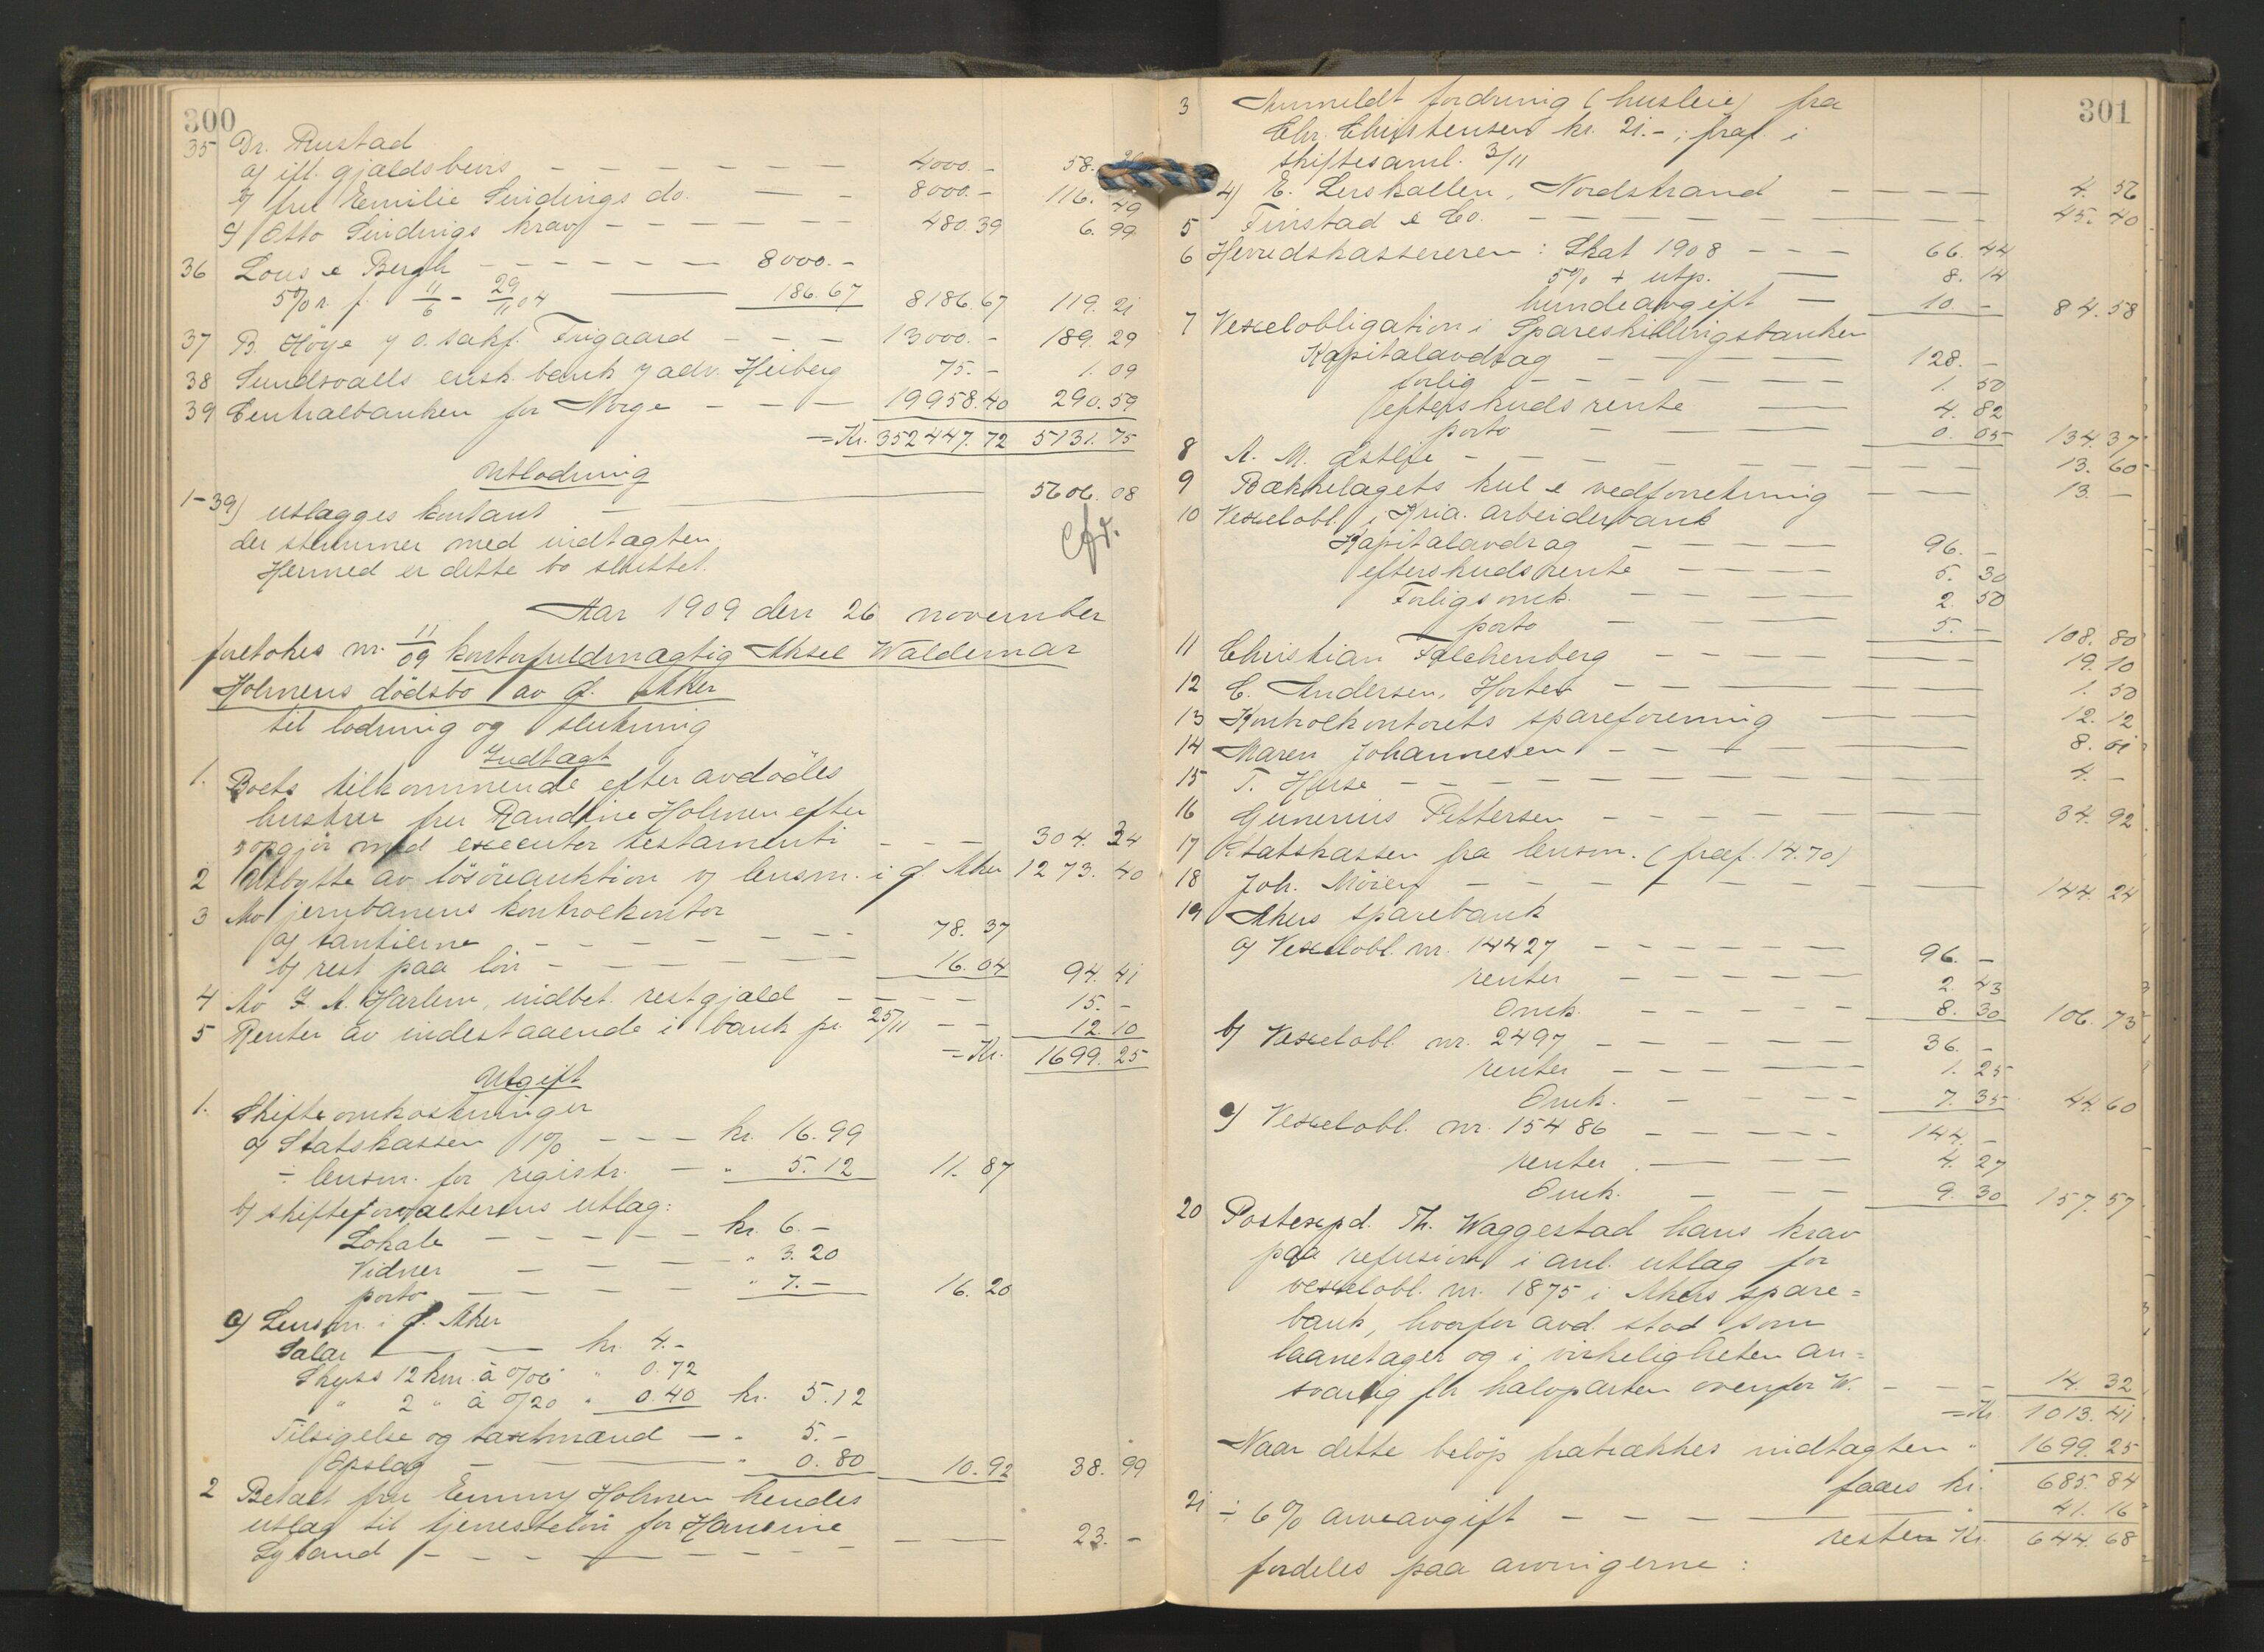 300
35 Dr. Rustad
a) ifl. gjældsbevis — 4000.- 58.
b) fru Emilie Sindings do. — 8000.- 116. 49
c) Otto Sindings krav — 480.39 6. 99
36 Lous & Bergh — 8000.-
5% r. f. 11/6 - 29/11 04 — 186.67 8186.67 119. 21
37 B. Höye v o.sakf. Frigaard — 13000.- 189. 29
38 Sundsvalls ensk. bank v adv. Heiberg 75.- 1. 09
39 Centralbanken for Norge — 19958.40 290.59
=Kr. 352447.72 5131.75
Utlodning
1-39) utlægges kontant — 5606.08
der stemmer med indtægten.
Hermed er dette bo sluttet.
Aar 1909 den 26 november
foretokes nr. 11/09 kontorfuldmægtig Aksel Waldemar
Holmens dödsbo av Ø. Aker
til lodning og slutning
Indtægt
1. Boets tilkommende efter avdödes
hustru fru Randine Holmen efter
opgjör med executor testamenti — 304. 34
2 Utbytte av lösöreauktion v lensm. i Ø Aker 1273. 40
3 Av jernbanens kontrolkontor
a) tantieme — 78. 37
b) rest paa lön — 16. 04 94. 41
4 Av I. A. Harlem, indbet. restgjæld — 15. -
5 Renter av indestaaende i bank pr. 25/11 — 12. 10
= Kr. 1699. 25
Utgift
1. Skifteomkostninger
a) Statskassen 1% — kr. 16.99
÷ lensm. for registr. — " 5. 12 11. 87
b) skifteforvalterens utlæg:
Lokale — kr. 6. -
Vidner — " 3. 20
porto — " 7. - 16. 20
c) Lensm. i Ø. Aker
Salær — kr. 4. -
Skyss 12 km. à 0/06 " 0.72
" 2 " à 0/20 " 0.40 kr. 5.12
Tilsigelse og taxtmænd — " 5. -
Opslag — " 0.80 10.92 38. 99
2 Betalt fru Emmy Holmen hendes
utlæg til tjenestelön for Hansine
— 23. -
301
3 Anmeldt fordring (husleie) fra
Chr. Christensen kr. 21.-; fraf. i
skiftesaml. 3/11
4) E. Lerskallen, Nordstrand — 4. 56
5 Finstad & Co. — 45. 40
6 Herredskassereren: Skat 1908 — 66. 44
5% + utp. — 8. 14
hundeavgift — 10. - 84.58
7 Vexelobligation i Spareskillingsbanken
Kapitalavdrag — 128. -
forlig — 1. 50
efterskudsrente — 4. 82
porto — 0. 05 134.37
8 A. M. Østlie — 13. 60
9 Bækkelagets kul & vedforretning — 13 -
10 Vexelobl. i Kria. arbeiderbank
Kapitalavdrag — 96. -
efterskudsrente — 5. 30
Forligsomk. — 2. 50
porto — 5. - 108. 80
11 Christian Falckenberg — 19. 10
12 C. Andersen, Horten — 1. 50
13 Kontrolkontorets spareforening — 12. 12
14 Maren Johannesen — 8. 01
15 T. Huse — 4. -
16 Gunerius Pettersen — 34. 92
17 Statskassen fra lensm. (fraf. 14.70)
18 Joh. — 144. 24
19 Akers sparebank
a) Vexelobl. nr. 14427 — 96. -
renter — 2. 43
Omk. — 8. 30 106. 73
b) Vexelobl. nr. 2497 — 36. -
renter — 1. 25
Omk. — 7. 35 44.60
c) Vexelobl. nr. 15486 — 144. -
renter — 4. 27
Omk. — 9. 30 157. 57
20 Postexpd. Th. Waggestad hans krav
paa refusion i anl. utlæg for
vexelobl. nr. 1875 i Akers spare=
bank, hvorfor avd. stod som
laanetager og i virkeligheten an=
svarlig for halvparten ovenfor W. — 14. 32
=Kr 1013. 41
Naar dette belöp fratrækkes indtægten " 1699. 25
faaes kr. 685. 84
21 ÷ 6% arveavgift — 41. 16
resten Kr. 644. 68
fordeles paa arvingerne: